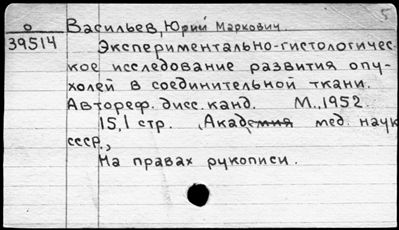 5
О Васильев, Юрий Маркович.
39514 Экспериментально-гистологичес-
кое исследование развития опу-
холей в соединительной ткани.
Автореф. дисс. канд. М., 1952.
15,1 стр. (Академия мед. наук
СССР.,
На правах рукописи.